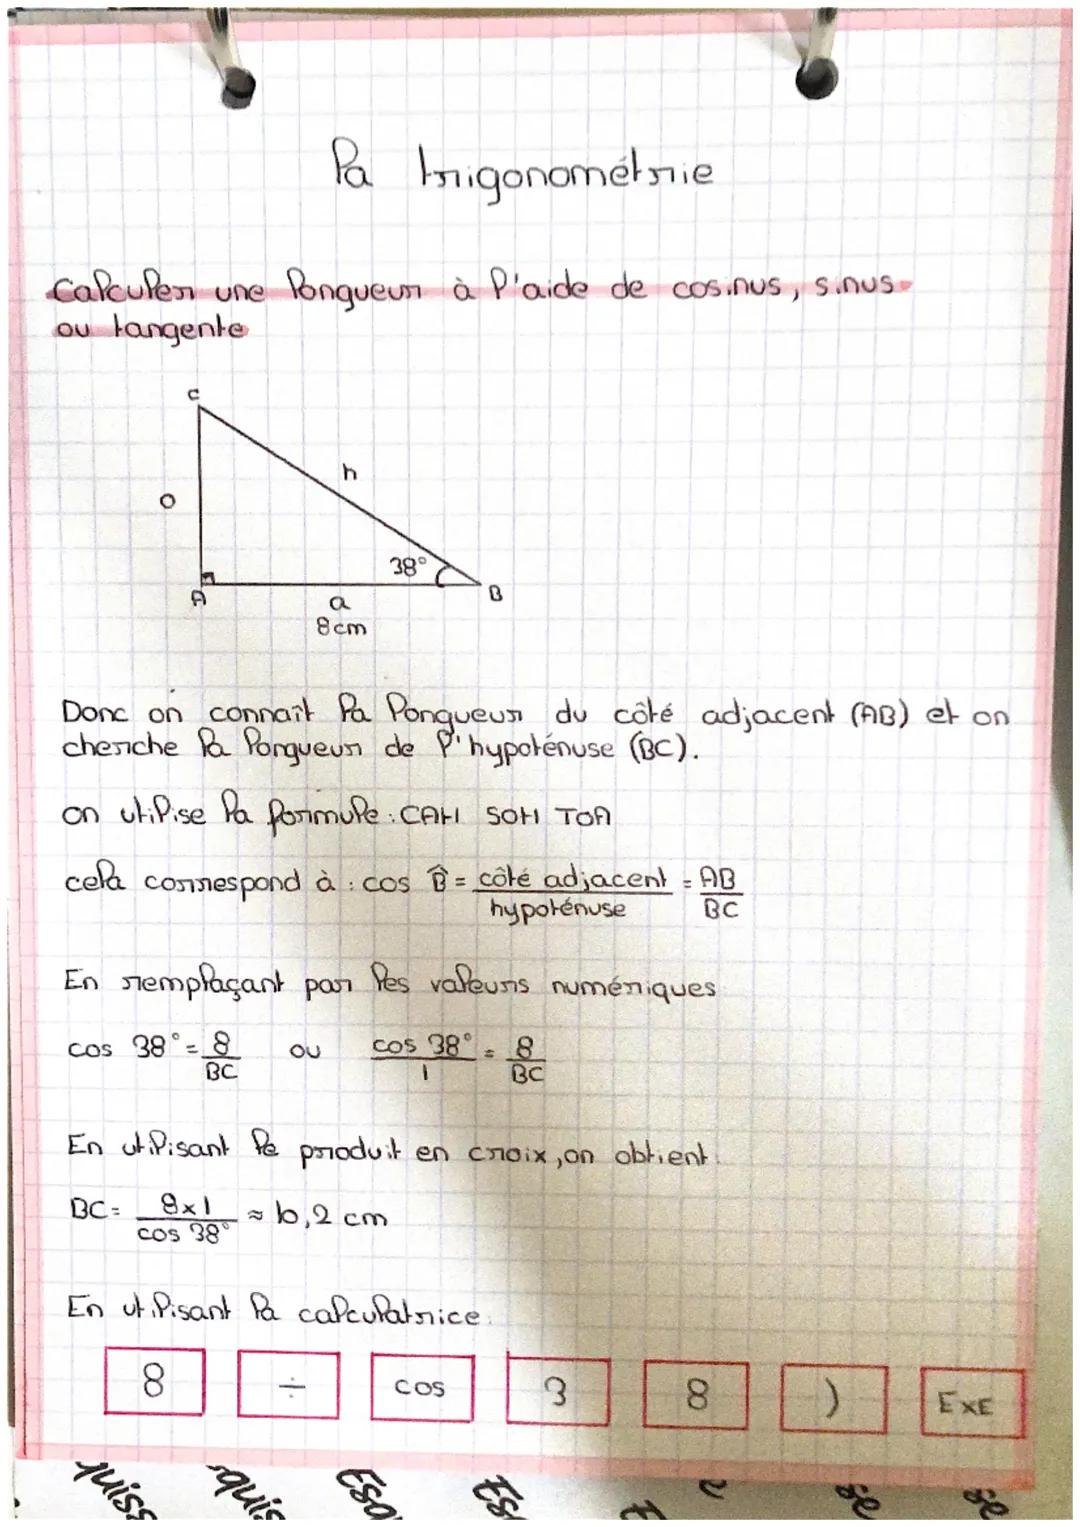 La trigonométrie
Calculer une longueur à l'aide de cosinus, sinus
ou tangente
C
h
o
38°
A
B
a
8cm
Donc on connaît la longueur du côté adjacent (AB) et on
cherche la longueur de l'hypoténuse (BC).
on utilise la formule : CAH SOH TOA
cela correspond à : cos B̂ = côté adjacent / hypoténuse = AB / BC
En remplaçant par les valeurs numériques
cos 38° = 8 / BC ou cos 38° / 1 = 8 / BC
En utilisant le produit en croix, on obtient :
BC = 8x1 / cos 38° ≈ 10,2 cm
En utilisant la calculatrice :
8 ÷ cos 3 8 ) EXE